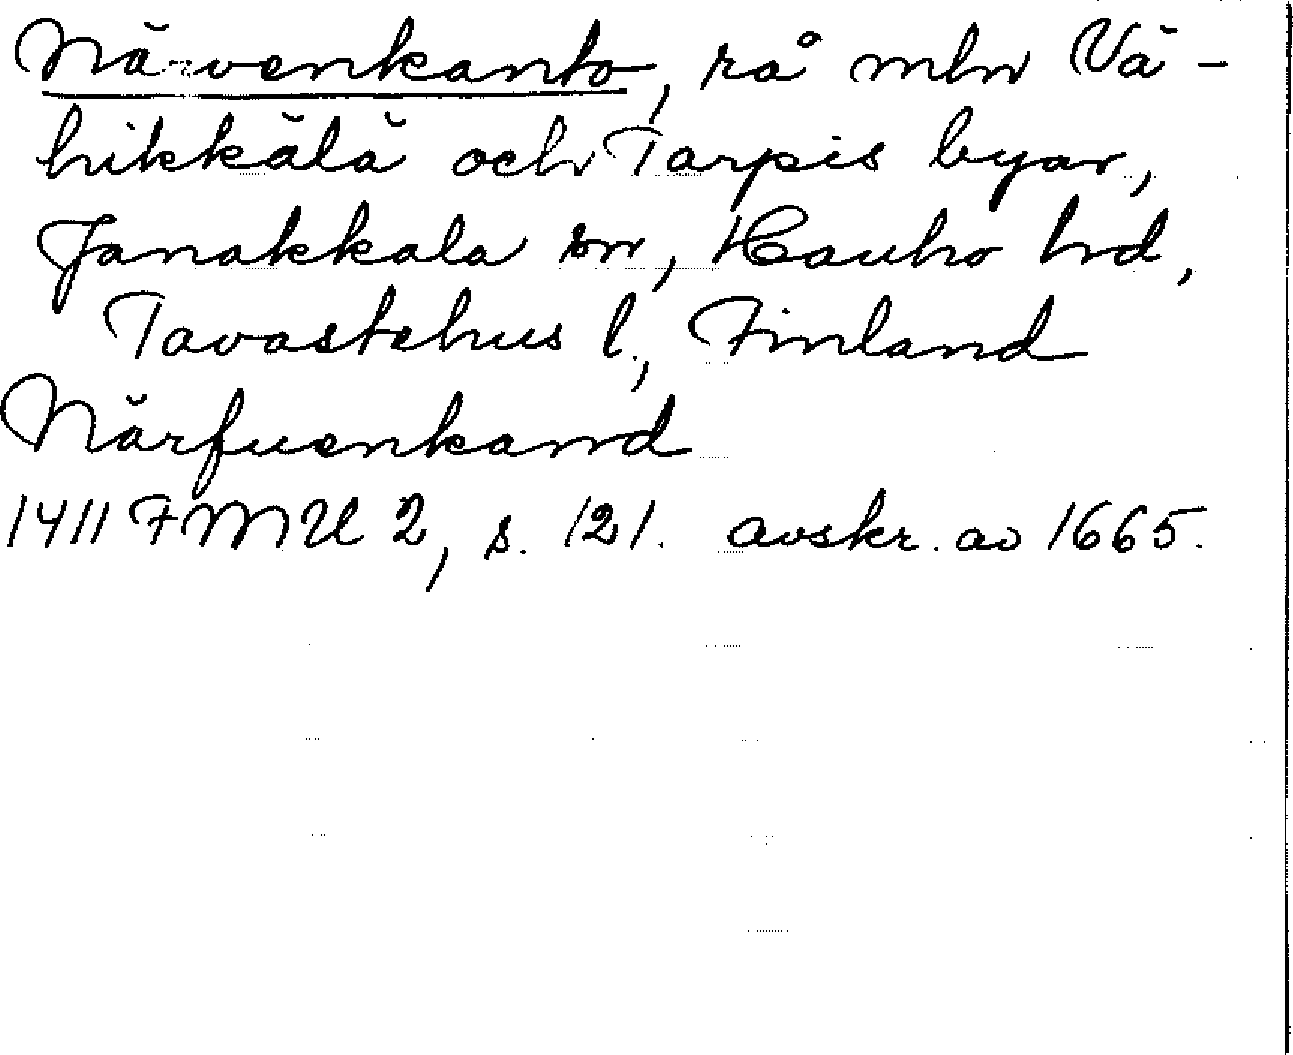 Närvenkanto, rå mln Vä-
hikkälä och Tarpis byar,
Janakkala sn, Hauho hd,
Tavastehus l., Finland
Närfuenkand
1411 FMU 2, s. 121. avskr. av 1665.